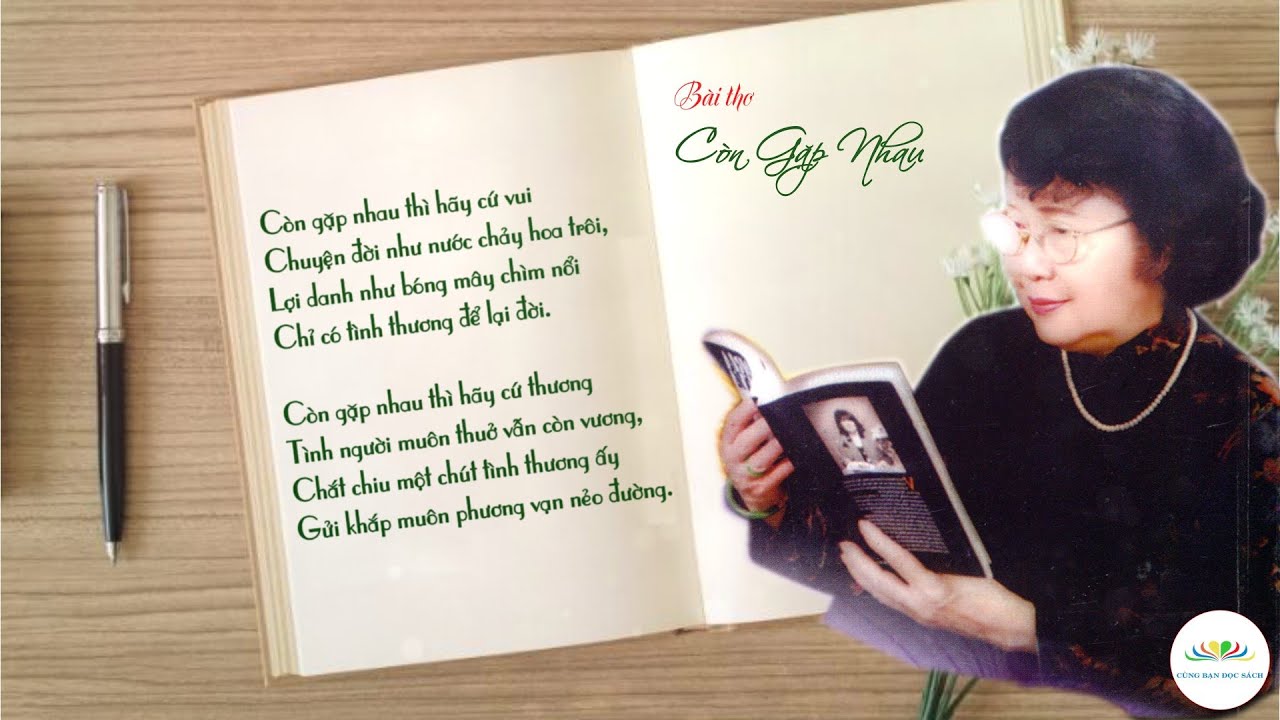 Còn gặp nhau thì hãy cứ vui
Chuyện đời như nước chảy hoa trôi,
Lợi danh như bóng mây chìm nổi
Chỉ có tình thương để lại đời.
Còn gặp nhau thì hãy cứ thương
Tình người muôn thuở vẫn còn vương,
Chắt chiu một chút tình thương ấy
Gửi khắp muôn phương vạn nẻo đường.
Bài thơ
Còn Gặp Nhau
CÙNG BẠN ĐỌC SÁCH